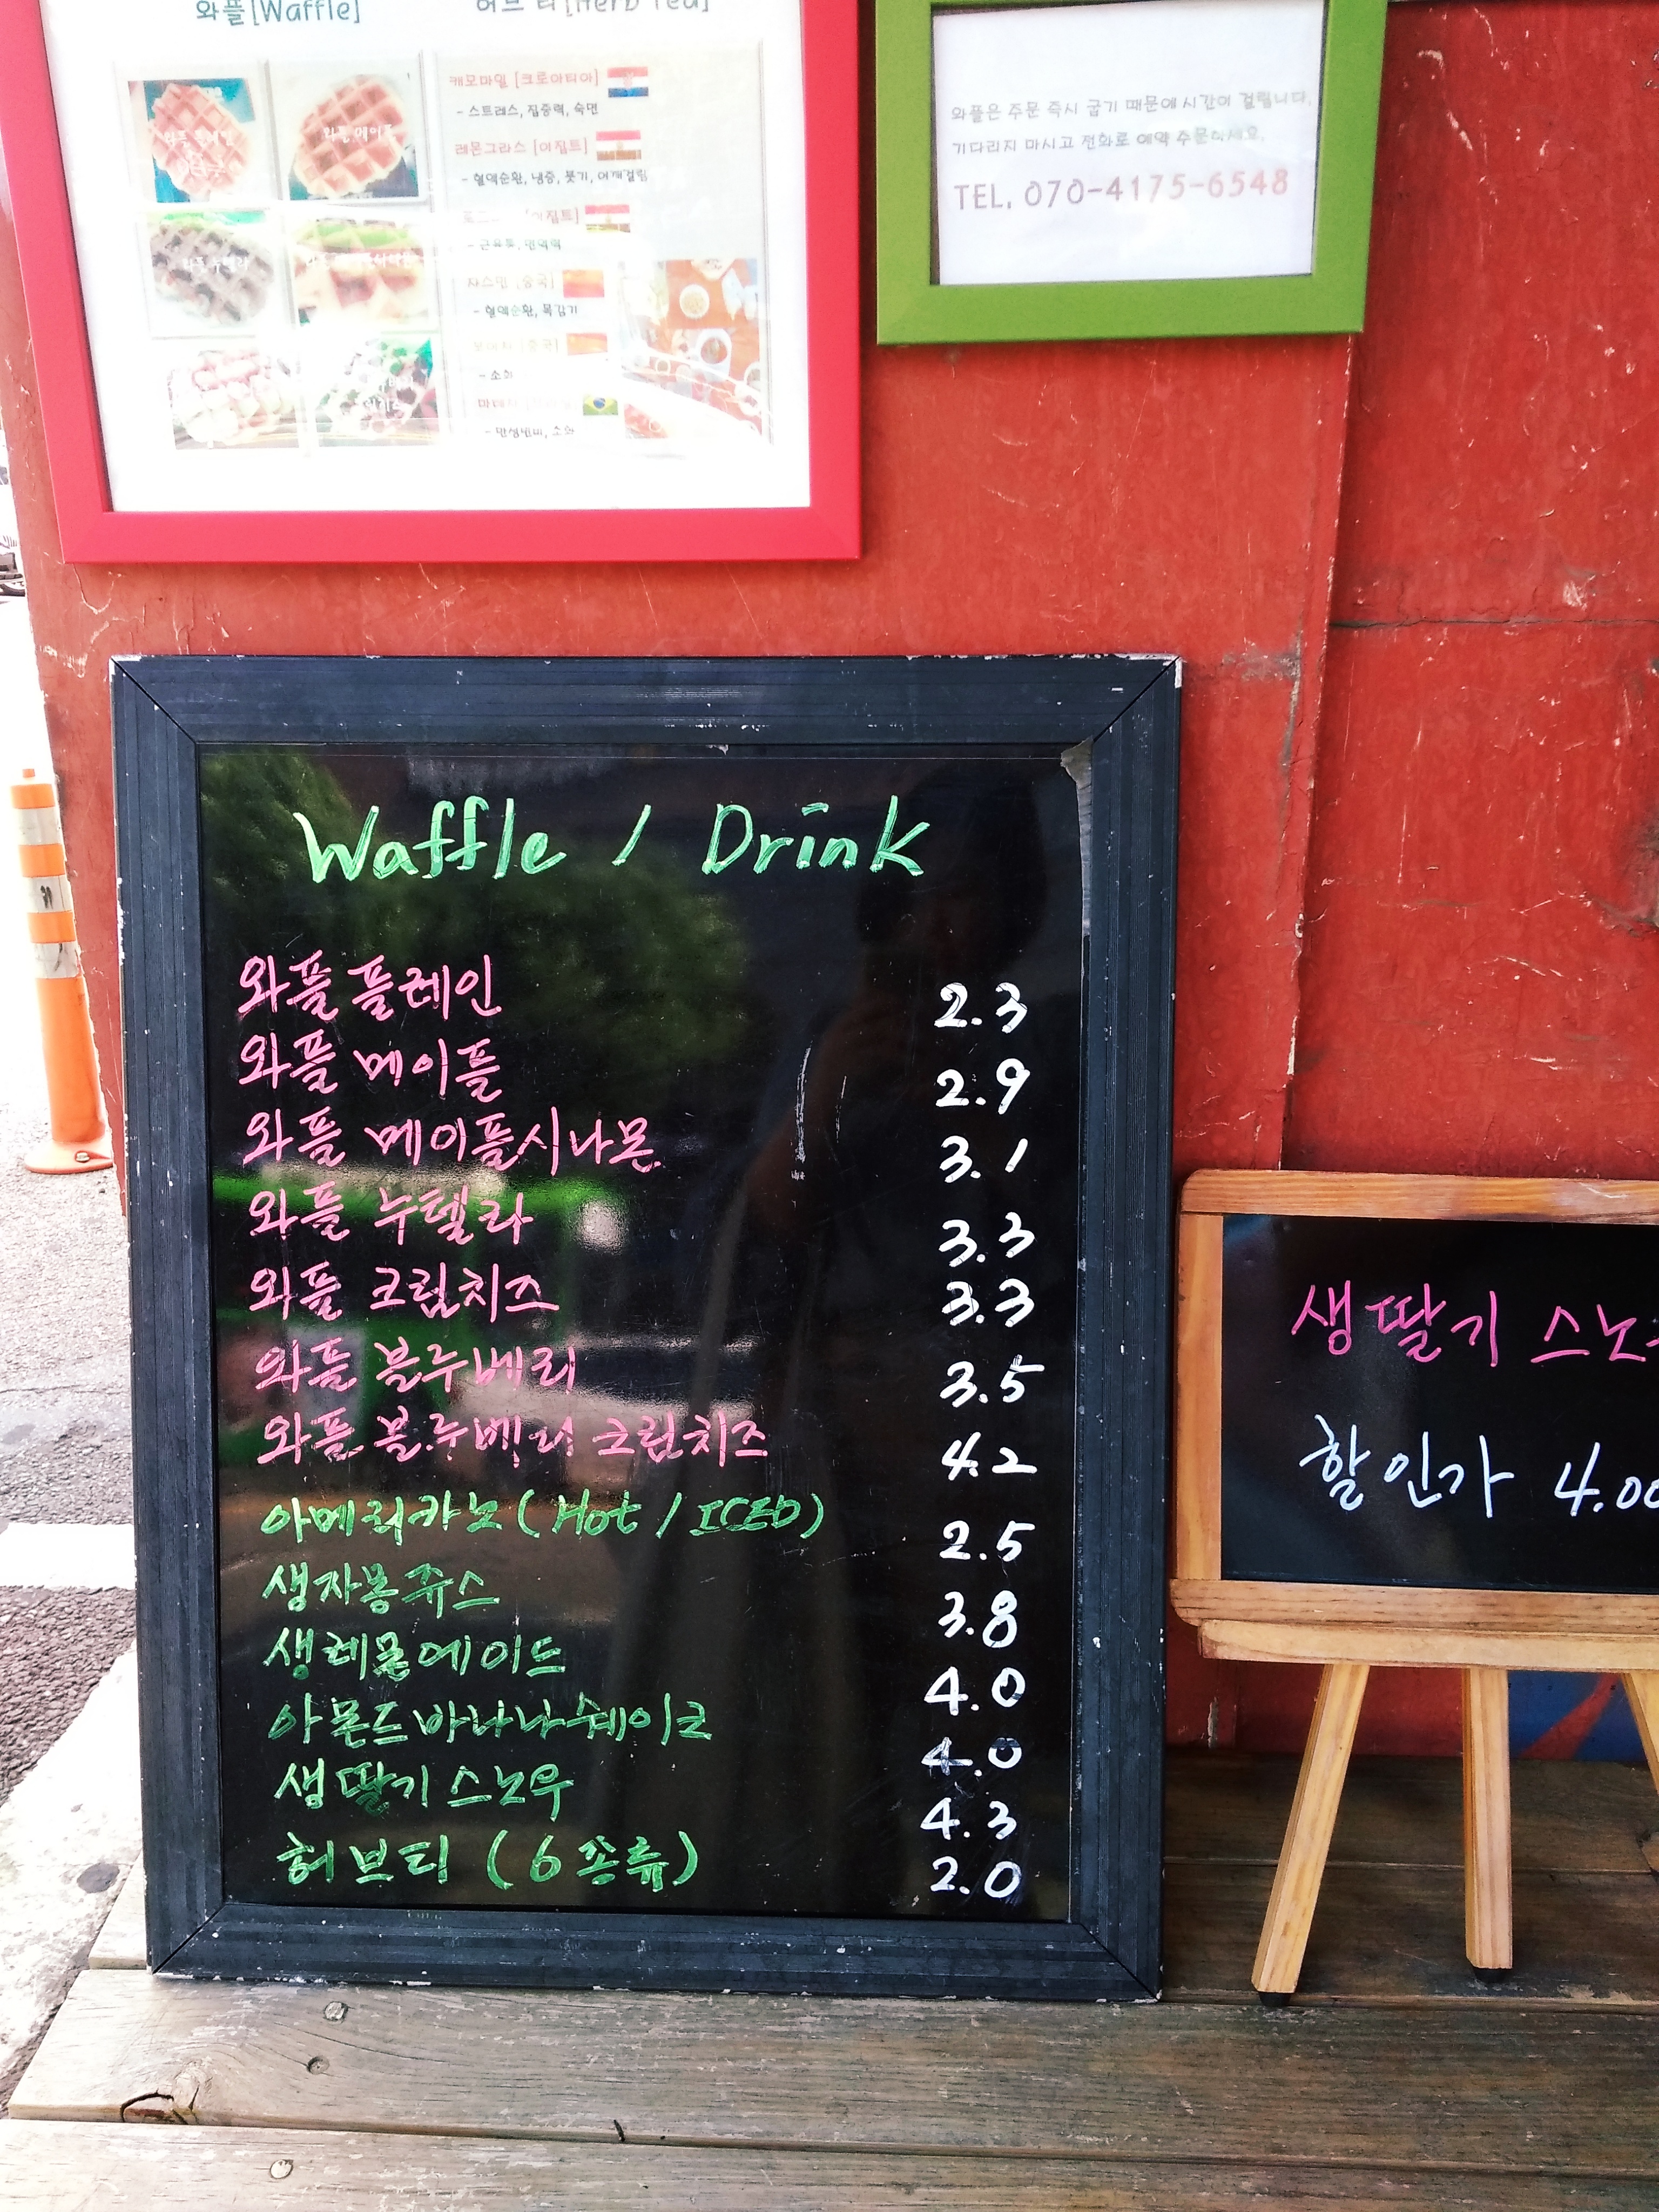 와플[Waffle]
허브 티[Herb Tea]
와플 플레인
와플 메이플
와플 누텔라
캐모마일 [크로아티아]
- 스트레스, 집중력, 숙면
레몬그라스 [이집트]
- 혈액순환, 냉증, 붓기, 어깨결림
[이집트]
- 근육통, 면역력
쟈스민 [중국]
- 혈액순환, 목감기
[중국]
- 소화
- 만성변비, 소화
와플은 주문 즉시 굽기 때문에 시간이 걸립니다.
기다리지 마시고 전화로 예약 주문하세요.
TEL. 070-4175-6548
Waffle / Drink
와플 플레인 2.3
와플 메이플 2.9
와플 메이플시나몬 3.1
와플 누텔라 3.3
와플 크림치즈 3.3
와플 블루베리 3.5
와플 블루베리 크림치즈 4.2
아메리카노 (Hot / ICED) 2.5
생자몽쥬스 3.8
생레몬에이드 4.0
아몬드바나나쉐이크 4.0
생딸기 스노우 4.3
허브티 (6종류) 2.0
생딸기 스노
할인가 4.00